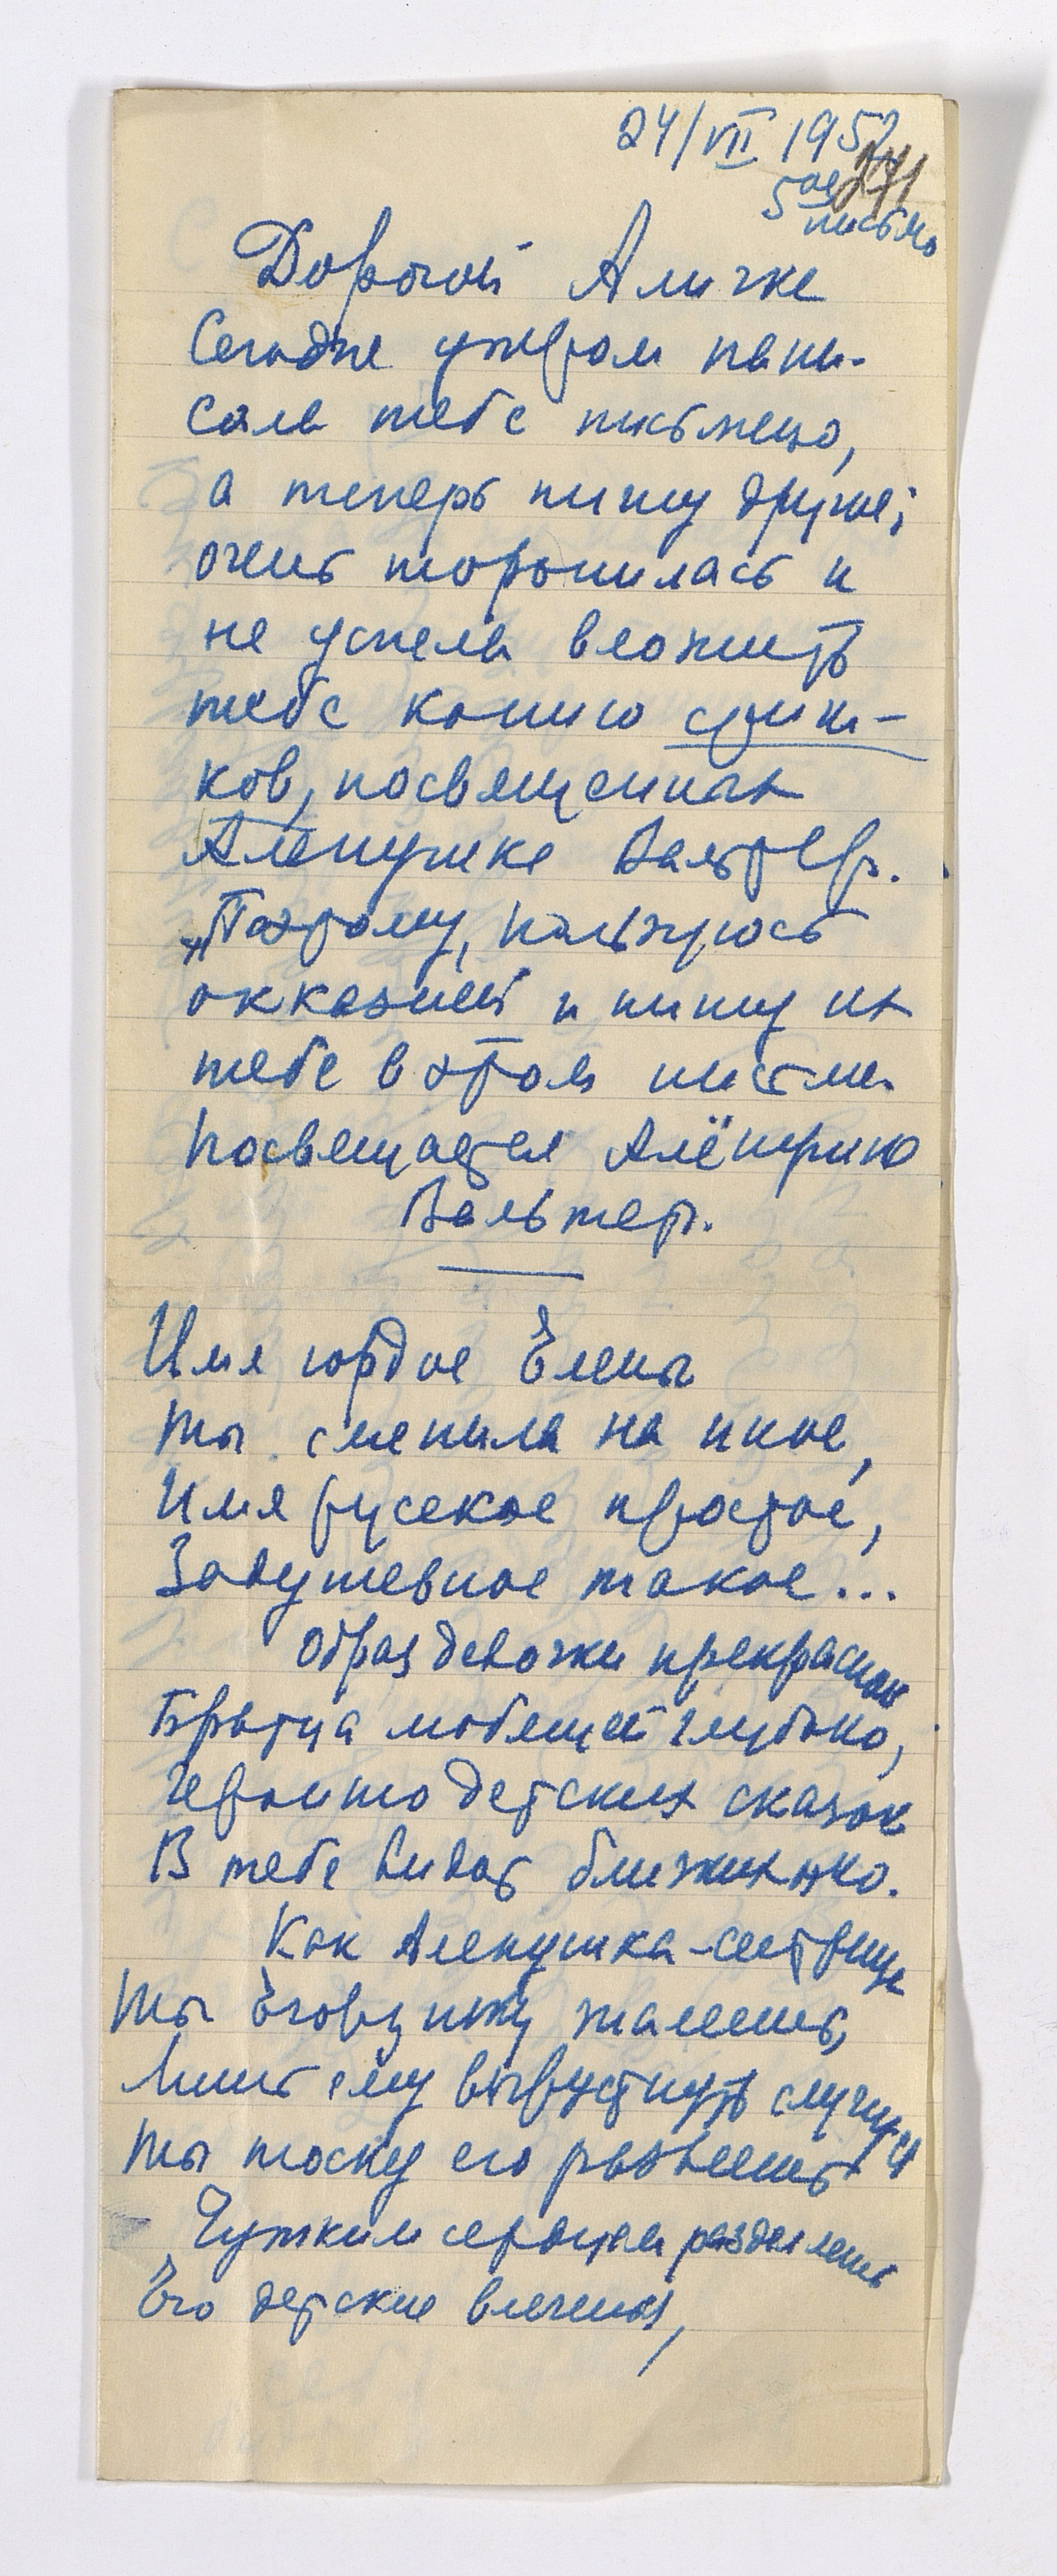 24/VII 1952
271
5ое письмо
Дорогой Аличке
Сегодне утром напи-
сала тебе письмецо,
а теперь пишу другое;
очень торопилась и
не успела вложить
тебе копию стиш-
ков, посвященных
Алёнушке Вальтер.
„Поэтому, пользуюсь
окказией и пишу их
тебе в этом письме.
Посвещается Алёнушке
Вальтер.
Имя гордое Елены
Ты сменила на иное,
Имя русское простое,
Задушевное такое...
Образ девочки прекрасной
Братца любящей глубоко,
Героиню детских сказок
В тебе видят
Как Аленушка-сестрица
Ты жалеешь,
Лишь ему взгрустнуть случится
Ты тоску его развеешь
Чутким сердцем разделяешь
Его детские влеченья,